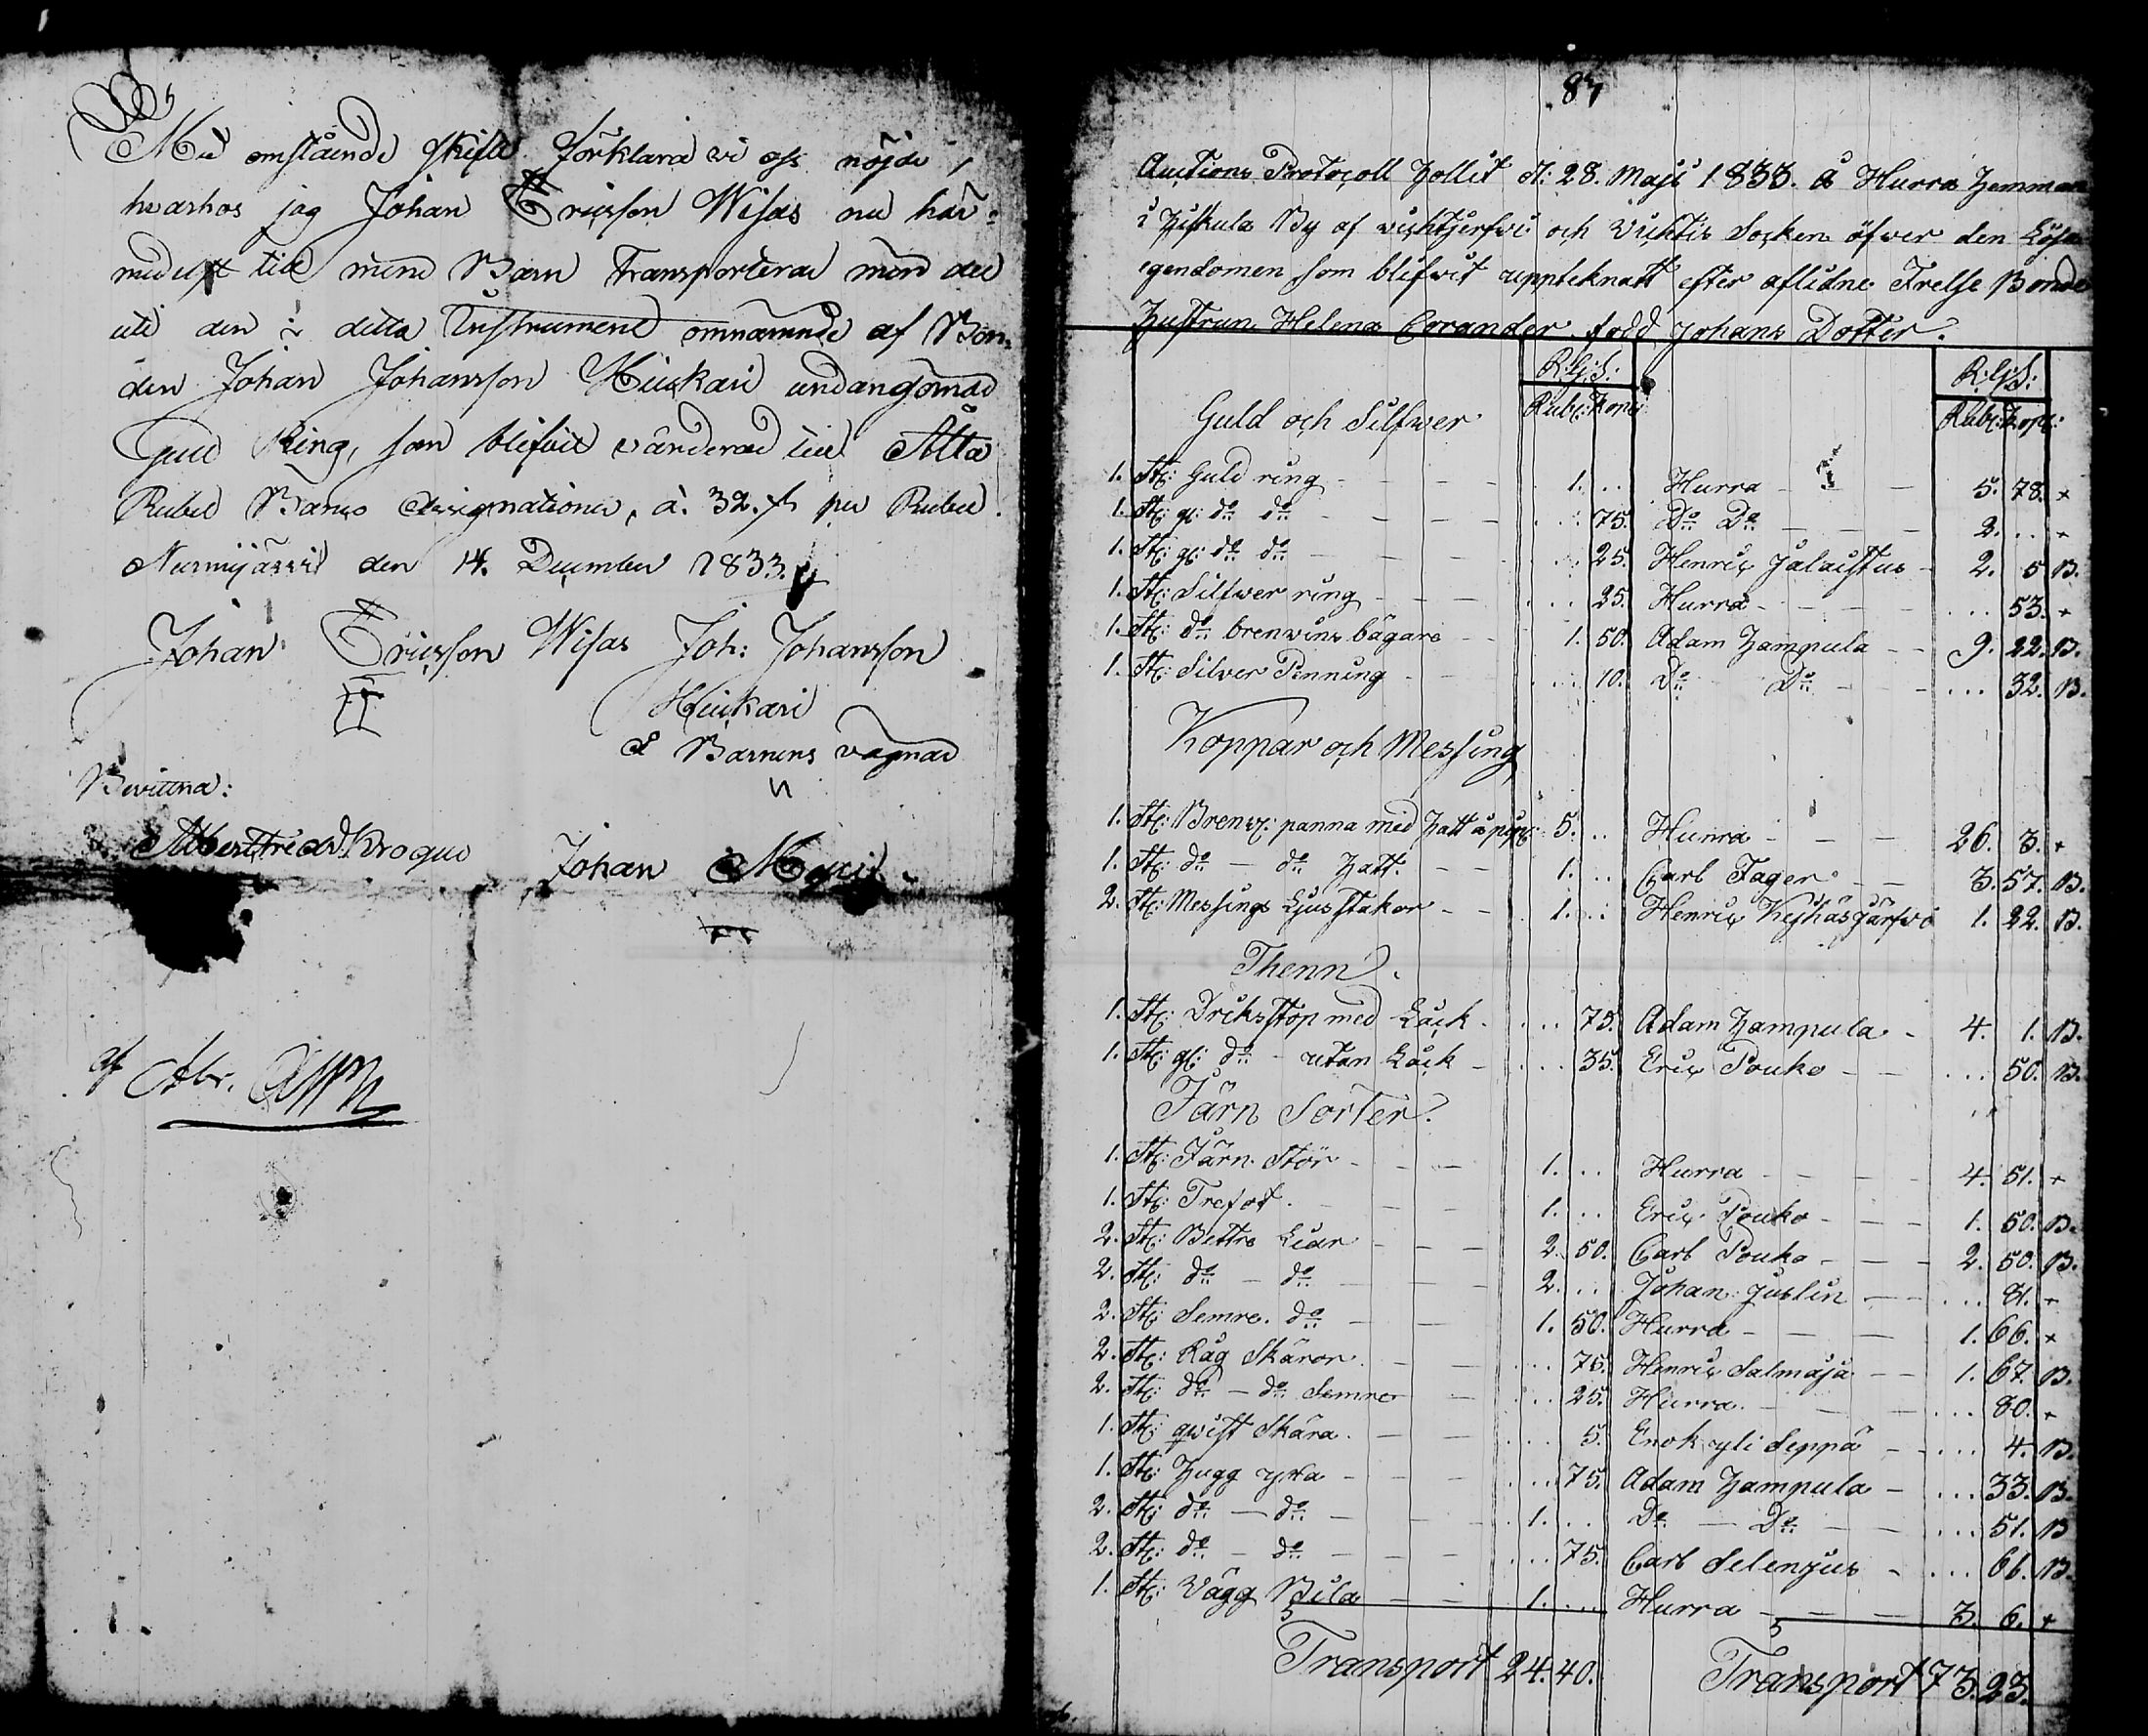 Med omstående skifte förklara vi oss nöjde,
hvarhos jag Johan Ericsson Wisas nu här-
medelst till mine Barn Transporterar min del
uti den i detta Instrument omnämnde af Bon-
den Johan Johansson Kiukari undangömde
Gull Ring, som blifvit värderad till Åtta
Rubel Banco Assignationer, à. 32. per Rubel.
Nurmijärvi den 14. December 1833.
Johan Ericsson Wisas Joh: Johansson
Kiukari
å Barnens vägnar
Bevittna:
Albert Fredr. Krogius Johan
af Abr.
87
Auctions Protocoll hollit d: 28. Maji 1833. å Hurra hemman
i Hiskula By af wichtjerfwi och Vichtis Socken öfwer den Lösa
egendomen som blifwit uppteknatt efter aflidne Frelse Bonde
Hustrun Helena Corander född Johans Dotter.
R:G:S: R:G:S:
Guld och Silfwer Rub: Kop: Rub: Kop:
1. St: Guld ring - - - 1. .. Hurra - - 5. 78. +
1. St: gl: do do - - - ... 75. Do Do - - 2. .. +
1. St: gl: do do - - - ... 25. Henric Jalaistus - 2. 5 B.
1. St: Silfwer ring - - - ... 25. Hurra - - - ... 53. +
1. St: do brenwins bägare - - 1. 50. Adam Hampula - - 9. 22. B.
1. St: Silver Penning - - ... 10. Do Do - - ... 32. B.
Koppar och Messing
1. St: Brenw: panna med hatt å pipp: 5. .. Hurra - - - 26. 3. +
1. St: do - do hatt. - - 1. .. Carl Fager - - 3. 57. B.
2. St: Messings Ljus Stakor - - 1. .. Henric Keihäsjärfvi 1. 22. B.
Thenn.
1. St: Dricks Stop med Låck. ... 75. Adam Hampula - 4. 1. B.
1. St: gl: do - utan Låck - ... 35. Eric Pouko - - ... 50. B.
Järn Sorter.
1. St: Järn Stör - - - 1. .. Hurra - - - - 4. 51. +
1. St: Trefot. - - - 1. .. Eric Pouko - - - 1. 50. B.
2. St: Bettre Liar - - - 2. 50. Carl Pouko - - - 2. 50. B.
2. St: do - do - - - 2. .. Johan Juslin - - ... 81. +
2. St: Semre. do - - 1. 50. Hurra - - - 1. 66. +
2. St: Råg Skäror. - - ... 75. Henric Salmoja - - 1. 67. B.
2. St: do - do Semre - ... 25. Hurra. - - - ... 80. +
1. St: qwist Skära. - - ... 5. Enok yli Seppä - ... 4. B.
1. St: Hugg yxa - - - ... 75. Adam Hampula - ... 33. B.
2. St: do - do - - - 1. .. Do - Do - - ... 51. B
2. St: do - do - - - ... 75. Carl Selenjus - ... 66. B.
1. St: Wägg Bila - - 1. ... Hurra - - - 3. 6. +
Transport 24. 40. Transport 73. 23.